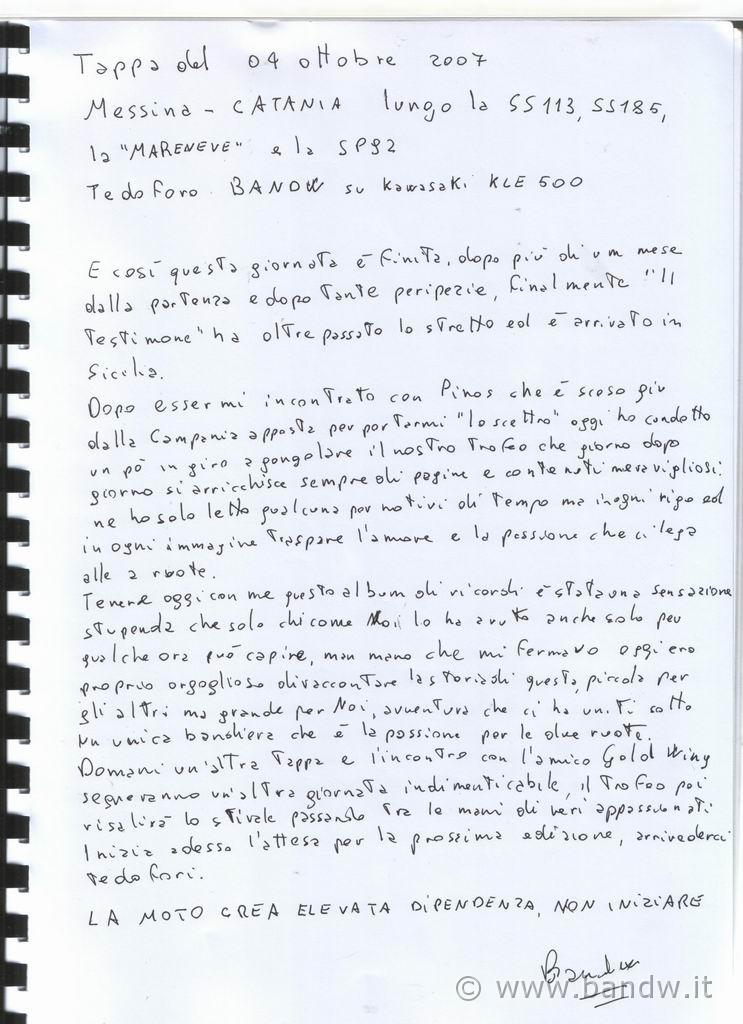 Tappa del 04 ottobre 2007
Messina - CATANIA lungo la SS113, SS185,
la "MARENEVE" e la SP92
Tedoforo BANDW su Kawasaki KLE 500
E così questa giornata è finita, dopo più di un mese
dalla partenza e dopo tante peripezie, finalmente "Il
Testimone" ha oltrepassato lo stretto ed è arrivato in
Sicilia.
Dopo essermi incontrato con Pinos che è sceso giù
dalla Campania apposta per portarmi "lo scettro" oggi ho condotto
un pò in giro a gongolare il nostro trofeo che giorno dopo
giorno si arricchisce sempre di pagine e contenuti meravigliosi:
ne ho solo letto qualcuna per motivi di tempo ma in ogni rigo ed
in ogni immagine traspare l'amore e la passione che ci lega
alle 2 ruote.
Tenere oggi con me questo album di ricordi è stata una sensazione
stupenda che solo chi come Noi lo ha avuto anche solo per
qualche ora può capire, man mano che mi fermavo oggi ero
proprio orgoglioso di raccontare la storia di questa, piccola per
gli altri ma grande per Noi, avventura che ci ha uniti sotto
un unica bandiera che è la passione per le due ruote.
Domani un'altra tappa e l'incontro con l'amico Gold Wing
segneranno un'altra giornata indimenticabile, il trofeo poi
risalirà lo stivale passando tra le mani di veri appassionati
Inizia adesso l'attesa per la prossima edizione, arrivederci
tedofori.
LA MOTO CREA ELEVATA DIPENDENZA, NON INIZIARE
Bandw
© www.bandw.it